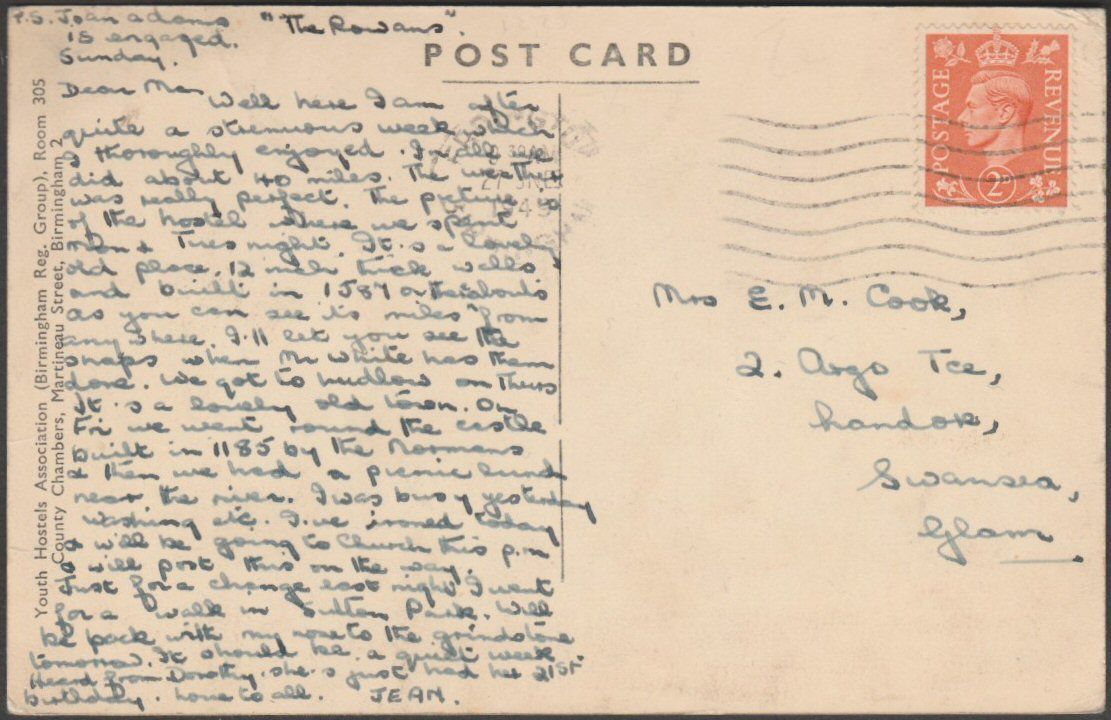 P.S. Joan adams
is engaged.
"The Rowans".
Sunday.
POST CARD
Dear Ma,
Well here I am after
quite a strenuous week which
I thoroughly enjoyed. In all we
did about 40 miles. The weather
was really perfect. The picture is
of the hostel where we spent
Mon & Tues night. It's a lovely
old place, 12 inch thick walls
and built in 1587 or thereabouts
as you can see its miles from
anywhere. I'll let you see the
snaps when Mr White has them
done. We got to Ludlow on Thurs
It's a lovely old town. On
Fri we went round the castle
built in 1185 by the Normans
& then we had a picnic lunch
near the river. I was busy yesterday
washing etc. I've ironed today
& will be going to Church this p.m
& will post this on the way.
Just for a change last night I went
for a walk in Sutton Park. Will
be back with my nose to the grindstone
tomorrow. It should be a quiet week
Heard from Dorothy, she's just had her 21st
birthday. Love to all. JEAN.
Youth Hostels Association (Birmingham Reg. Group), Room 305
County Chambers, Martineau Street, Birmingham 2
POSTAGE
REVENUE
2D
Mrs E. M. Cook,
2. Argo Tce,
Landore,
Swansea,
Glam.